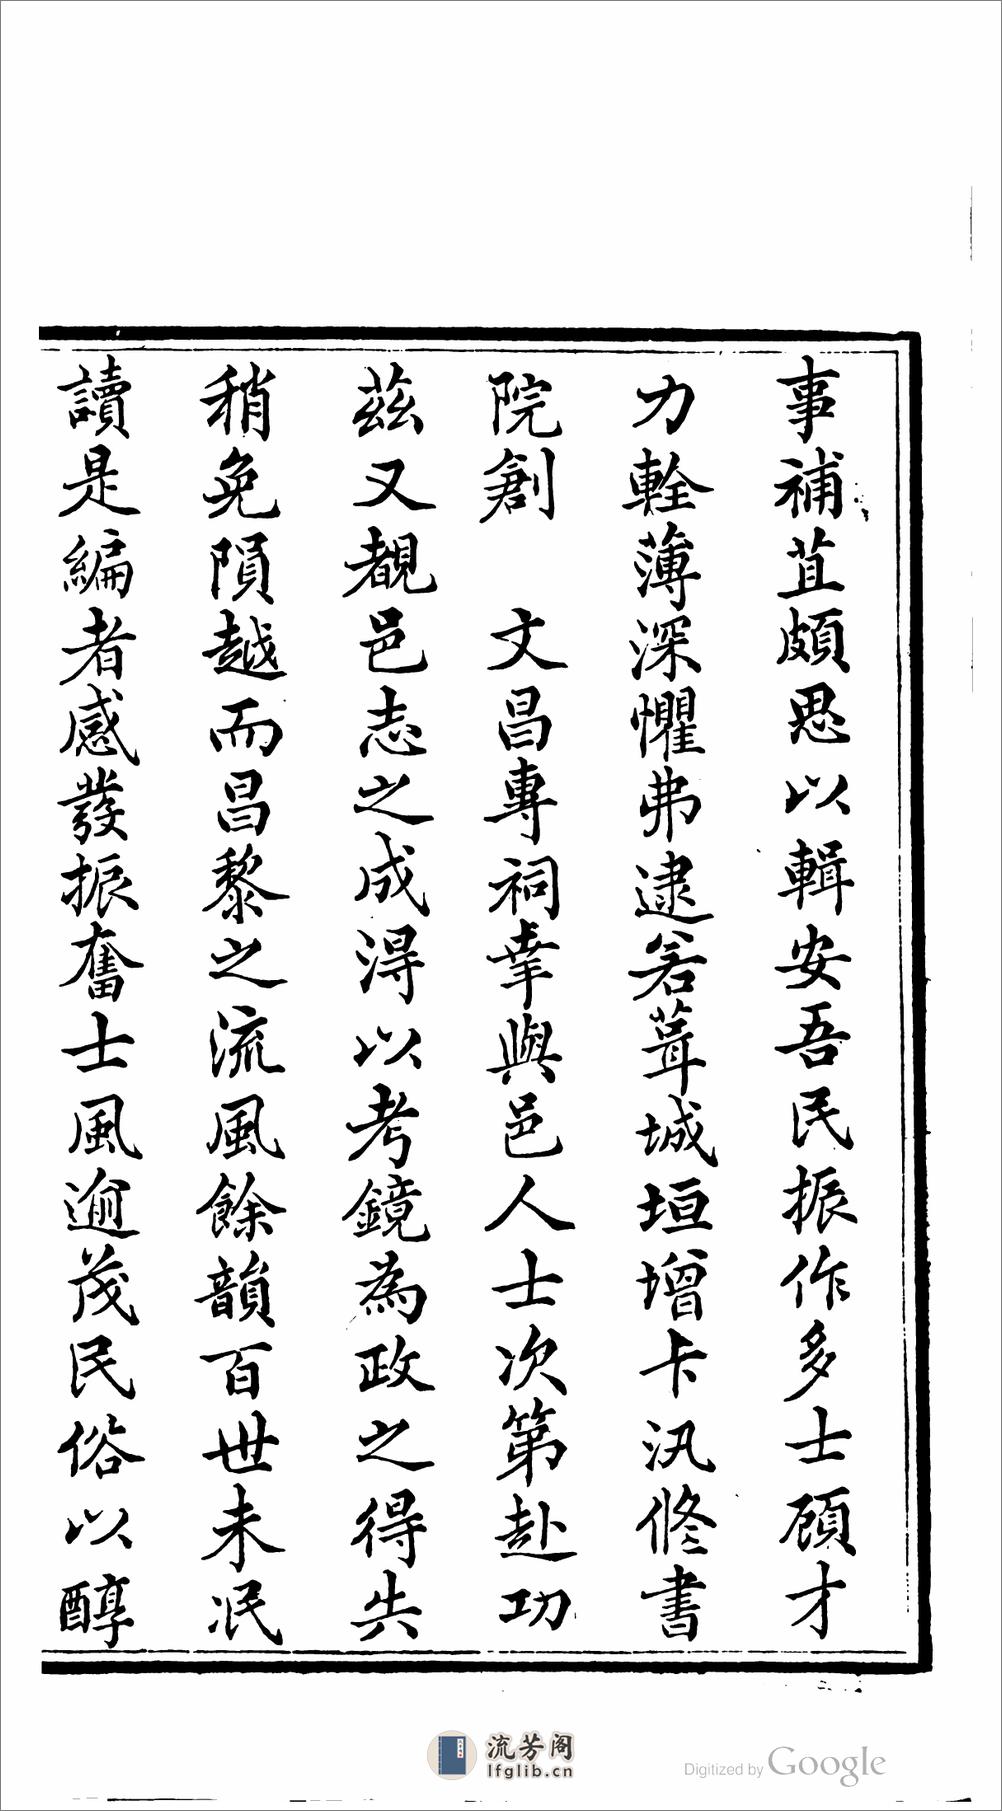 事補苴頗思以輯安吾民振作多士顧才
力輇薄深懼弗逮若葺城垣增卡汛修書
院創　文昌專祠幸與邑人士次第赴功
茲又覩邑志之成得以考鏡為政之得失
稍免隕越而昌黎之流風餘韻百世未泯
讀是編者感發振奮士風逾茂民俗以醇
流芳阁
lfglib.cn
Digitized by Google